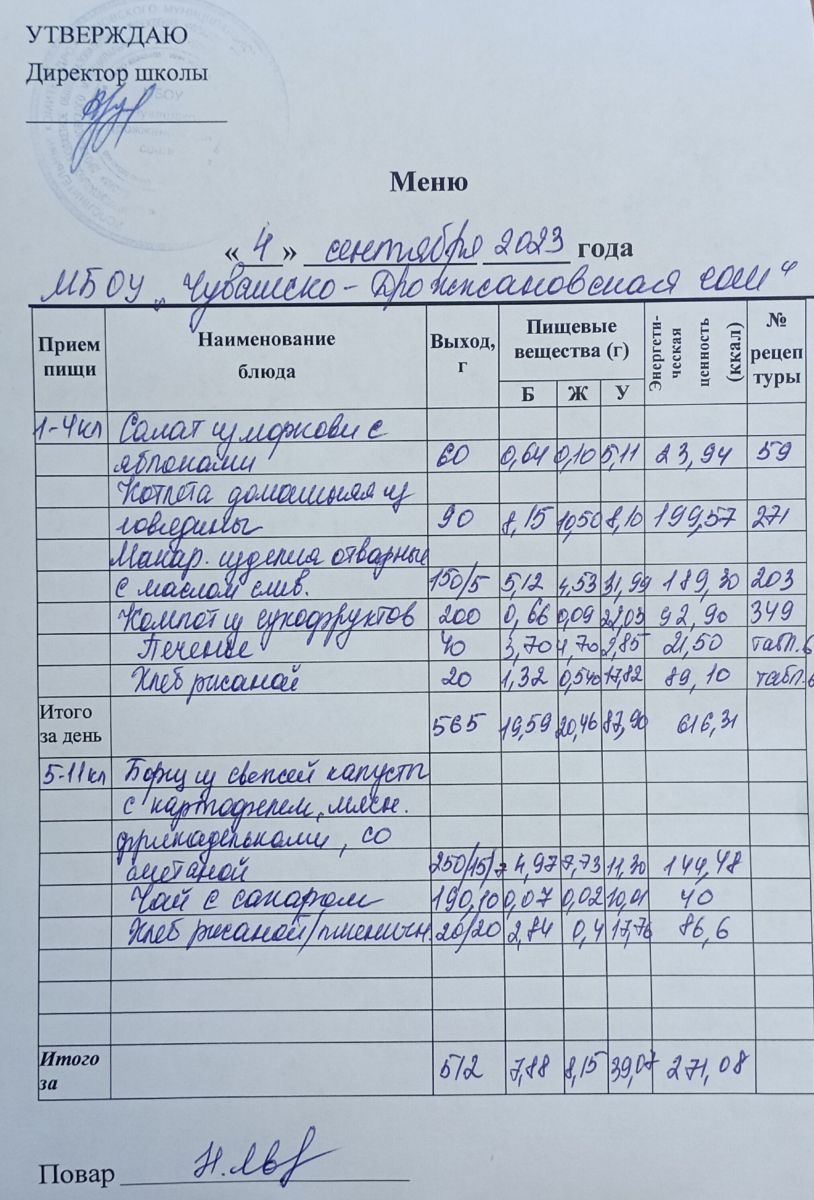 УТВЕРЖДАЮ
Директор школы
Меню
« 4 » сентября 2023 года
МБОУ „Чувашско-Дрожжановская сош“
Прием пищи Наименование блюда Выход, г Пищевые вещества (г) Б Ж У Энергетическая ценность (ккал) № рецептуры
1-4кл Салат из моркови с
яблоками 60 0,64 0,10 5,11 23,94 59
Котлета домашняя из
говядины 90 8,15 10,50 8,10 199,57 271
Макар. изделия отварные
с маслом слив. 150/5 5,12 4,53 31,99 189,30 203
Компот из сухофруктов 200 0,66 0,09 22,03 92,90 349
Печенье 40 3,70 4,70 2,85 21,50 табл.6
Хлеб ржаной 20 1,32 0,540 17,82 89,10 табл.6
Итого
за день 565 19,59 20,46 87,90 616,31
5-11кл Борщ из свежей капусты
с картофелем, мясн.
фрикадельками, со
сметаной 250/15/7 4,97 7,73 11,30 144,48
Чай с сахаром 190,10 0,07 0,02 10,01 40
Хлеб ржаной/пшеничн. 20/20 2,84 0,4 17,76 86,6
Итого
за 512 7,88 8,15 39,07 271,08
Повар